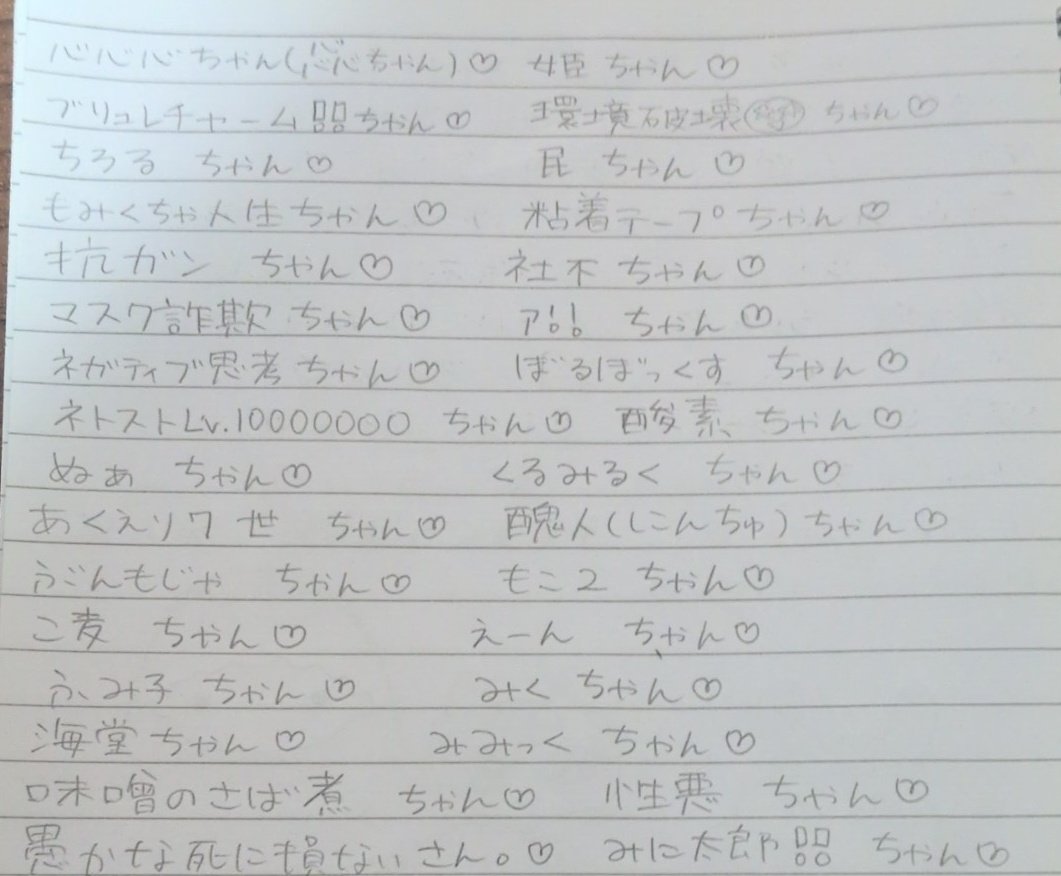 心心心ちゃん(心心心ちゃん)♡ 姫ちゃん♡
ブリュレチャーム吕吕ちゃん♡ 環境破壊ちゃん♡
ちろる ちゃん♡ 民 ちゃん♡
もみくちゃ人生ちゃん♡ 粘着テープちゃん♡
抗ガン ちゃん♡ 社不 ちゃん♡
マスク詐欺 ちゃん♡ ちゃん♡
ネガティブ思考ちゃん♡ ぼるぼっくす ちゃん♡
ネトストLv.10000000 ちゃん♡ 酸素、ちゃん♡
ぬぁ ちゃん♡ くるみるく ちゃん♡
あくえり7世 ちゃん♡ 醜人(しこんちゅ)ちゃん♡
うごんもじゃ ちゃん♡ もこ2 ちゃん♡
こ麦 ちゃん♡ えーん ちゃん♡
ふみ子 ちゃん♡ みく ちゃん♡
海堂ちゃん♡ みみっく ちゃん♡
味噌のさば煮 ちゃん♡ 性悪 ちゃん♡
愚かな死に損ないさん。♡ みに太郎吕吕 ちゃん♡